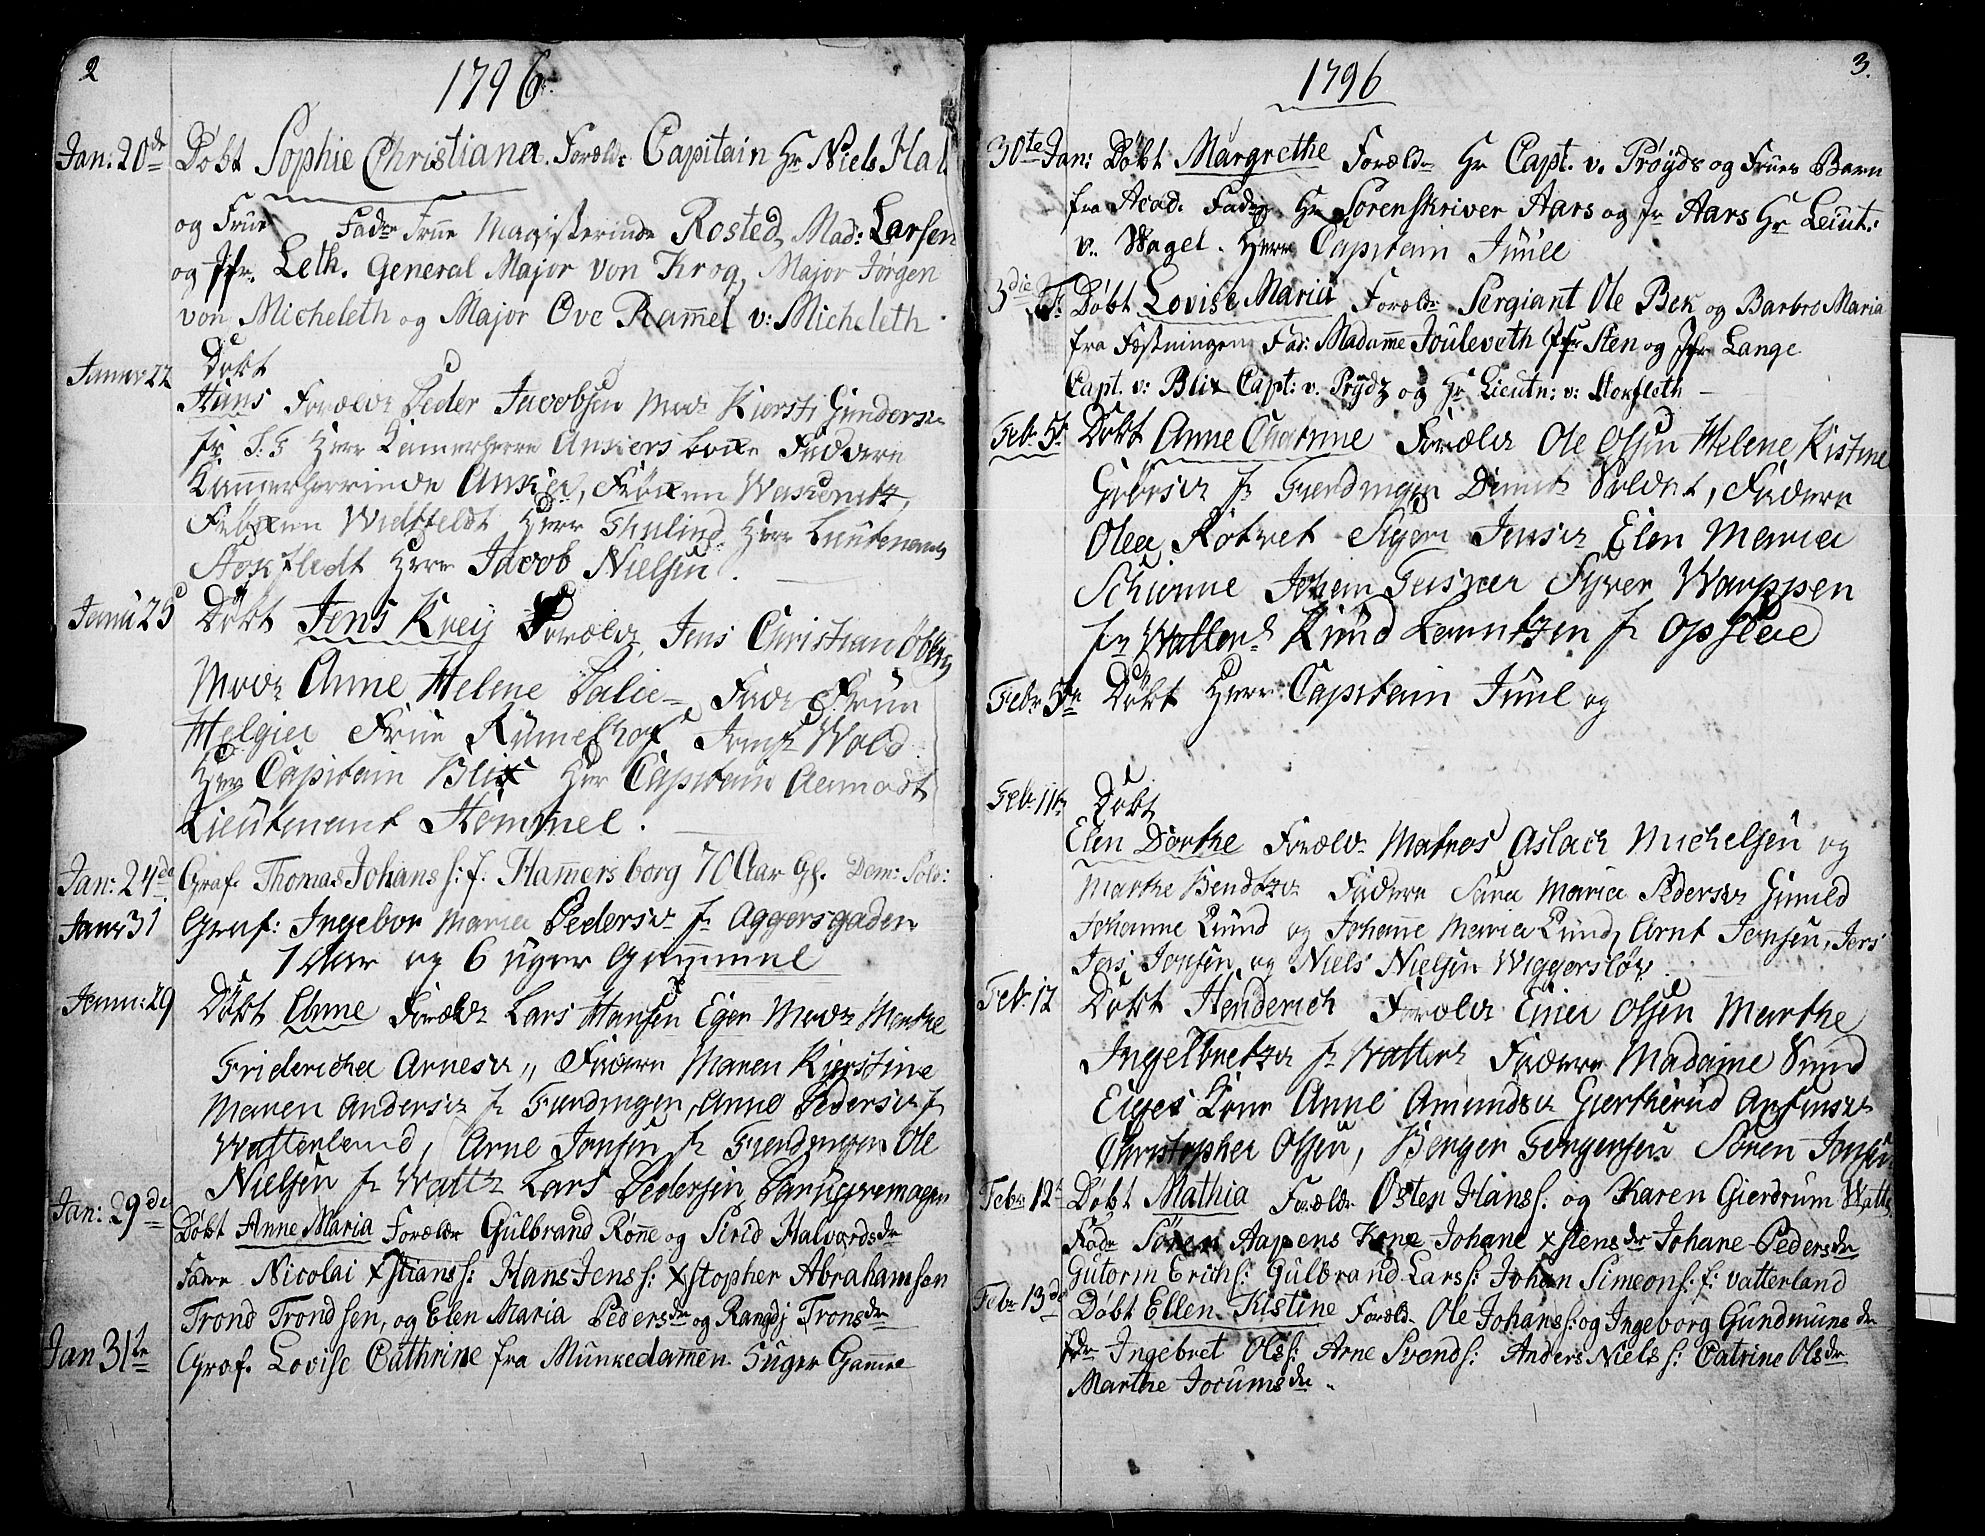 2
1796
Jan: 20de Døbt Sophie Christiana. Foræld: Capitain Hr Niels Hal
og Frue Fadr Frue Magisterinde Rosted, Mad: Larsen
og Jfr. Leth. General Major von Krog, Major Jørgen
von Micheleth og Major Ove Ram̅el v: Micheleth
Januar 22 Døbt
Hans Foreldr Peder Jacobsen Modr Kiersti Gundersdr
fr Herr Kamerherre Ankers Faddere
Kammerherrinde Anker, Frøken
Frøken Widtfeldt Herr Thulind Herr Lieutenant
Stokfledt Herr Jacob Nielsen.
Janu 25 Døbt Jens Krey Forældr Jens Christian Øberg
Modr Anne Helene Fadr Frue
Frue Rumelhof Jomfr Wold
Herr Capitain Blix Herr Capitain Aamodt
Lieutenant Hemmel.
Jan: 24de Graf. Thomas Johans s: f. Ham̅ersborg 70 Aar Gl. Dem: Sold:
Janr 31 Graf: Ingebor Maria Pedersdr fr Aggersgaden
1 Aar og 6 uger Gammel
Janu: 29 Døbt Anne Forældr Lars Hansen Eger Modr Marthe
Fridericha Arnesdr,, Faddere Maren Kierstine
Maren Andersdr fr Fierdingen, Anne Pedersdr fr
Watterland, Arne Jonsen fr Fierdingen Ole
Nielsen fr Wattr Lars Pedersen
Jan: 29de
Døbt Anne Maria Forældre Gulbrand Rønne og Sirid Halvordsdr
Faddre Nicolai Xstians s: Hans Jens s: Xstopher Abrahamsen
Trond Trondsen, og Elen Maria Pedersdr og Rangdj Tronsdr
Jan 31te Graf. Lovise Cathrine fra Munkedammen. 3 uger Gamme
3.
1796
30te Jan: Døbt Margrethe Foræld Hr Capt. v. Prøyds og Frues Barn
fra Acad. Fadr. Hr Sorenskriver Aars og fr Aars Hr Leiut:
v. Wagel. Herr Capitain Juuel
3die F: Døbt Lovise Maria Foræld Sergiant Ole Bek og Barbro Maria
fra Fæstningen Fad: Madam̅e Jouleveth Jfr Sten og Jfr Lange
Capt. v: Blix Capt: v. Prydz og Hr Lieutn: v: Stokfleth —
Febr 5t Døbt Anne Foreldr Ole Olsen Helene Kistine
fr Fierdingen Soldat, Faddere
Olea Jensdr Elen Maria
Johan Warppen
fr Watterl Knud Lauritzen fr Opsloe
Febr 5te Døbt Herr Capitain Juul og
Feb 11te Døbt
Elen Dorthe Foreldr Matros Aslach Michelsen og
Marthe Faddere Sara Maria Pedersdr Gunild
Johanne Lund og Johanne Maria Lund, Arnt Jensen, Jens
Jens Jonsen og Niels Nielsen
Feb. 12 Døbt Henderich Foreldr Einer Olsen Marthe
fr Watterl Faddere Madame Sund
Kone Anne Amundsdr
Christopher Olsen, Berger Torgersen Søren
Febr 12te Døbt Mathia Foreldr Osten Hans s. og Karen Gierdrum Watt
Fadr Søren Aapens Kone Johane Xstensdr Johane Pedersdr
Gutorm Erich s: Gulbrand Lars s: Johan Simeons s. f: vatterland
Febr 13de Døbt Ellen Kistine Foreld. Ole Johans s: og Ingeborg Gundmunsdr
fdr Ingebret Ols s: Arne Svends s: Anders Niels s: Catrine Olsdr
Marthe Jocumsdr.